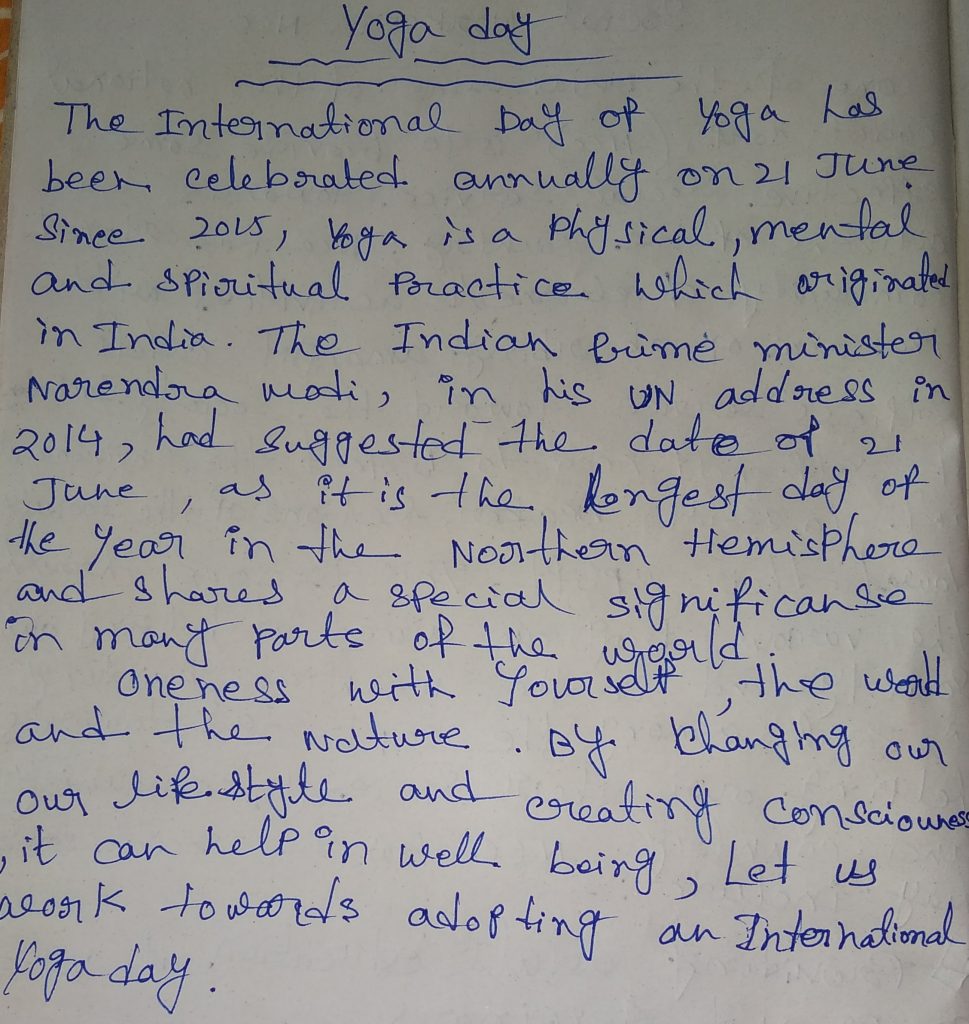 Yoga day
The International Day of Yoga has
been celebrated annually on 21 June
Since 2015, Yoga is a Physical, mental
and spiritual Practice which originated
in India. The Indian Prime minister
Narendra modi, in his UN address in
2014, had suggested the date of 21
June, as it is the longest day of
the Year in the Northern Hemisphere
and shares a special significanse
in many parts of the world.
Oneness with Yourself, the world
and the Nature. By Changing our
our lifestyle and creating Consciouness
, it can help in well being, Let us
work towards adopting an International
Yoga day.